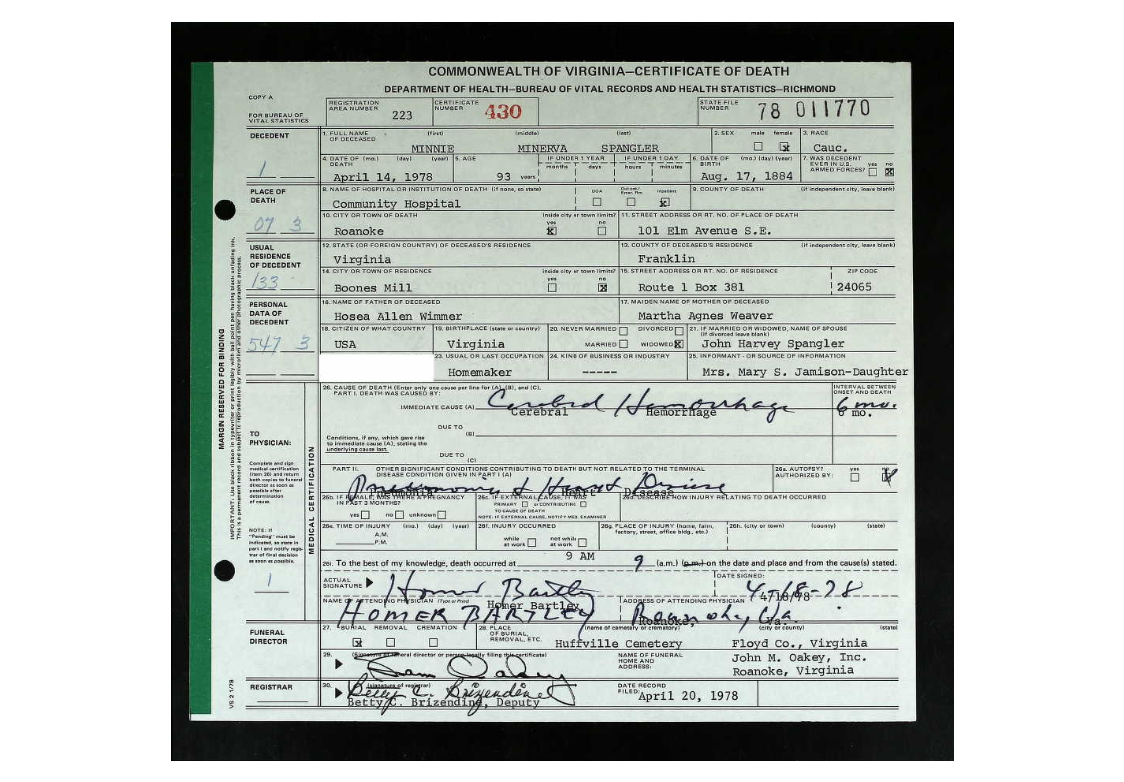 COMMONWEALTH OF VIRGINIA—CERTIFICATE OF DEATH
DEPARTMENT OF HEALTH—BUREAU OF VITAL RECORDS AND HEALTH STATISTICS—RICHMOND
COPY A
FOR BUREAU OF VITAL STATISTICS
REGISTRATION AREA NUMBER 223
CERTIFICATE NUMBER 430
STATE FILE NUMBER 78 011770
DECEDENT
1
1. FULL NAME OF DECEASED (first) (middle) (last)
MINNIE MINERVA SPANGLER
2. SEX male female x
3. RACE
Cauc.
4. DATE OF DEATH (mo.) (day) (year)
April 14, 1978
5. AGE
93 years
IF UNDER 1 YEAR months days
IF UNDER 1 DAY hours minutes
6. DATE OF BIRTH (mo.) (day) (year)
Aug. 17, 1884
7. WAS DECEDENT EVER IN U.S. ARMED FORCES? yes no x
PLACE OF DEATH
07 3
8. NAME OF HOSPITAL OR INSTITUTION OF DEATH (if none, so state)
Community Hospital
DOA Inpatient x
9. COUNTY OF DEATH (if independent city, leave blank)
10. CITY OR TOWN OF DEATH
Roanoke
inside city or town limits? yes x no
11. STREET ADDRESS OR RT. NO. OF PLACE OF DEATH
101 Elm Avenue S.E.
USUAL RESIDENCE OF DECEDENT
133
12. STATE (OR FOREIGN COUNTRY) OF DECEASED'S RESIDENCE
Virginia
13. COUNTY OF DECEASED'S RESIDENCE (if independent city, leave blank)
Franklin
14. CITY OR TOWN OF RESIDENCE
Boones Mill
inside city or town limits? yes no x
15. STREET ADDRESS OR RT. NO. OF RESIDENCE
Route 1 Box 381
ZIP CODE
24065
PERSONAL DATA OF DECEDENT
547 3
16. NAME OF FATHER OF DECEASED
Hosea Allen Wimmer
17. MAIDEN NAME OF MOTHER OF DECEASED
Martha Agnes Weaver
18. CITIZEN OF WHAT COUNTRY
USA
19. BIRTHPLACE (state or country)
Virginia
20. NEVER MARRIED DIVORCED
MARRIED WIDOWED x
21. IF MARRIED OR WIDOWED, NAME OF SPOUSE (if divorced leave blank)
John Harvey Spangler
23. USUAL OR LAST OCCUPATION
Homemaker
24. KIND OF BUSINESS OR INDUSTRY
-----
25. INFORMANT - OR SOURCE OF INFORMATION
Mrs. Mary S. Jamison-Daughter
MARGIN RESERVED FOR BINDING
TO PHYSICIAN:
Complete and sign medical certification (item 26) and return both copies to funeral director as soon as possible after determination of cause.
NOTE: If "Pending" must be indicated, so state in part I and notify registrar of final decision as soon as possible.
1
MEDICAL CERTIFICATION
26. CAUSE OF DEATH (Enter only one cause per line for (A), (B), and (C).
PART I. DEATH WAS CAUSED BY:
INTERVAL BETWEEN ONSET AND DEATH
IMMEDIATE CAUSE (A) Cerebral Hemorrhage 6 mo.
Cerebral Hemorrhage 6 mo.
DUE TO (B)
Conditions, if any, which gave rise to immediate cause (A), stating the underlying cause last.
DUE TO (C)
PART II. OTHER SIGNIFICANT CONDITIONS CONTRIBUTING TO DEATH BUT NOT RELATED TO THE TERMINAL DISEASE CONDITION GIVEN IN PART I (A)
Pneumonia & Heart Disease
Pneumonia & Heart Disease
26a. AUTOPSY? AUTHORIZED BY: yes
26b. IF FEMALE, WAS THERE A PREGNANCY IN PAST 3 MONTHS?
yes no unknown
26c. IF EXTERNAL CAUSE, IT WAS
PRIMARY or CONTRIBUTING
TO CAUSE OF DEATH
NOTE: IF EXTERNAL CAUSE, NOTIFY MED. EXAMINER
26d. DESCRIBE HOW INJURY RELATING TO DEATH OCCURRED
26e. TIME OF INJURY (mo.) (day) (year)
A.M.
P.M.
26f. INJURY OCCURRED
while at work not while at work
26g. PLACE OF INJURY (home, farm, factory, street, office bldg., etc.)
26h. (city or town) (county) (state)
9 AM
26i. To the best of my knowledge, death occurred at 9 (a.m.) (p.m.) on the date and place and from the cause(s) stated.
ACTUAL SIGNATURE Homer Bartley
DATE SIGNED: 4-18-78
4/18/78
NAME OF ATTENDING PHYSICIAN (Type or Print) Homer Bartley
HOMER BARTLEY
ADDRESS OF ATTENDING PHYSICIAN
Roanoke, Va.
Roanoke, Va.
FUNERAL DIRECTOR
27. BURIAL REMOVAL CREMATION
x
28. PLACE OF BURIAL, REMOVAL, ETC. (name of cemetery or crematory) (city or county) (state)
Huffville Cemetery Floyd Co., Virginia
29. (Signature of funeral director or person legally filing this certificate)
Sam Oakey
NAME OF FUNERAL HOME AND ADDRESS:
John M. Oakey, Inc.
Roanoke, Virginia
REGISTRAR
30. (signature of registrar)
Betty C. Brizendine
Betty C. Brizendine, Deputy
DATE RECORD FILED: April 20, 1978
VS 2 1/78